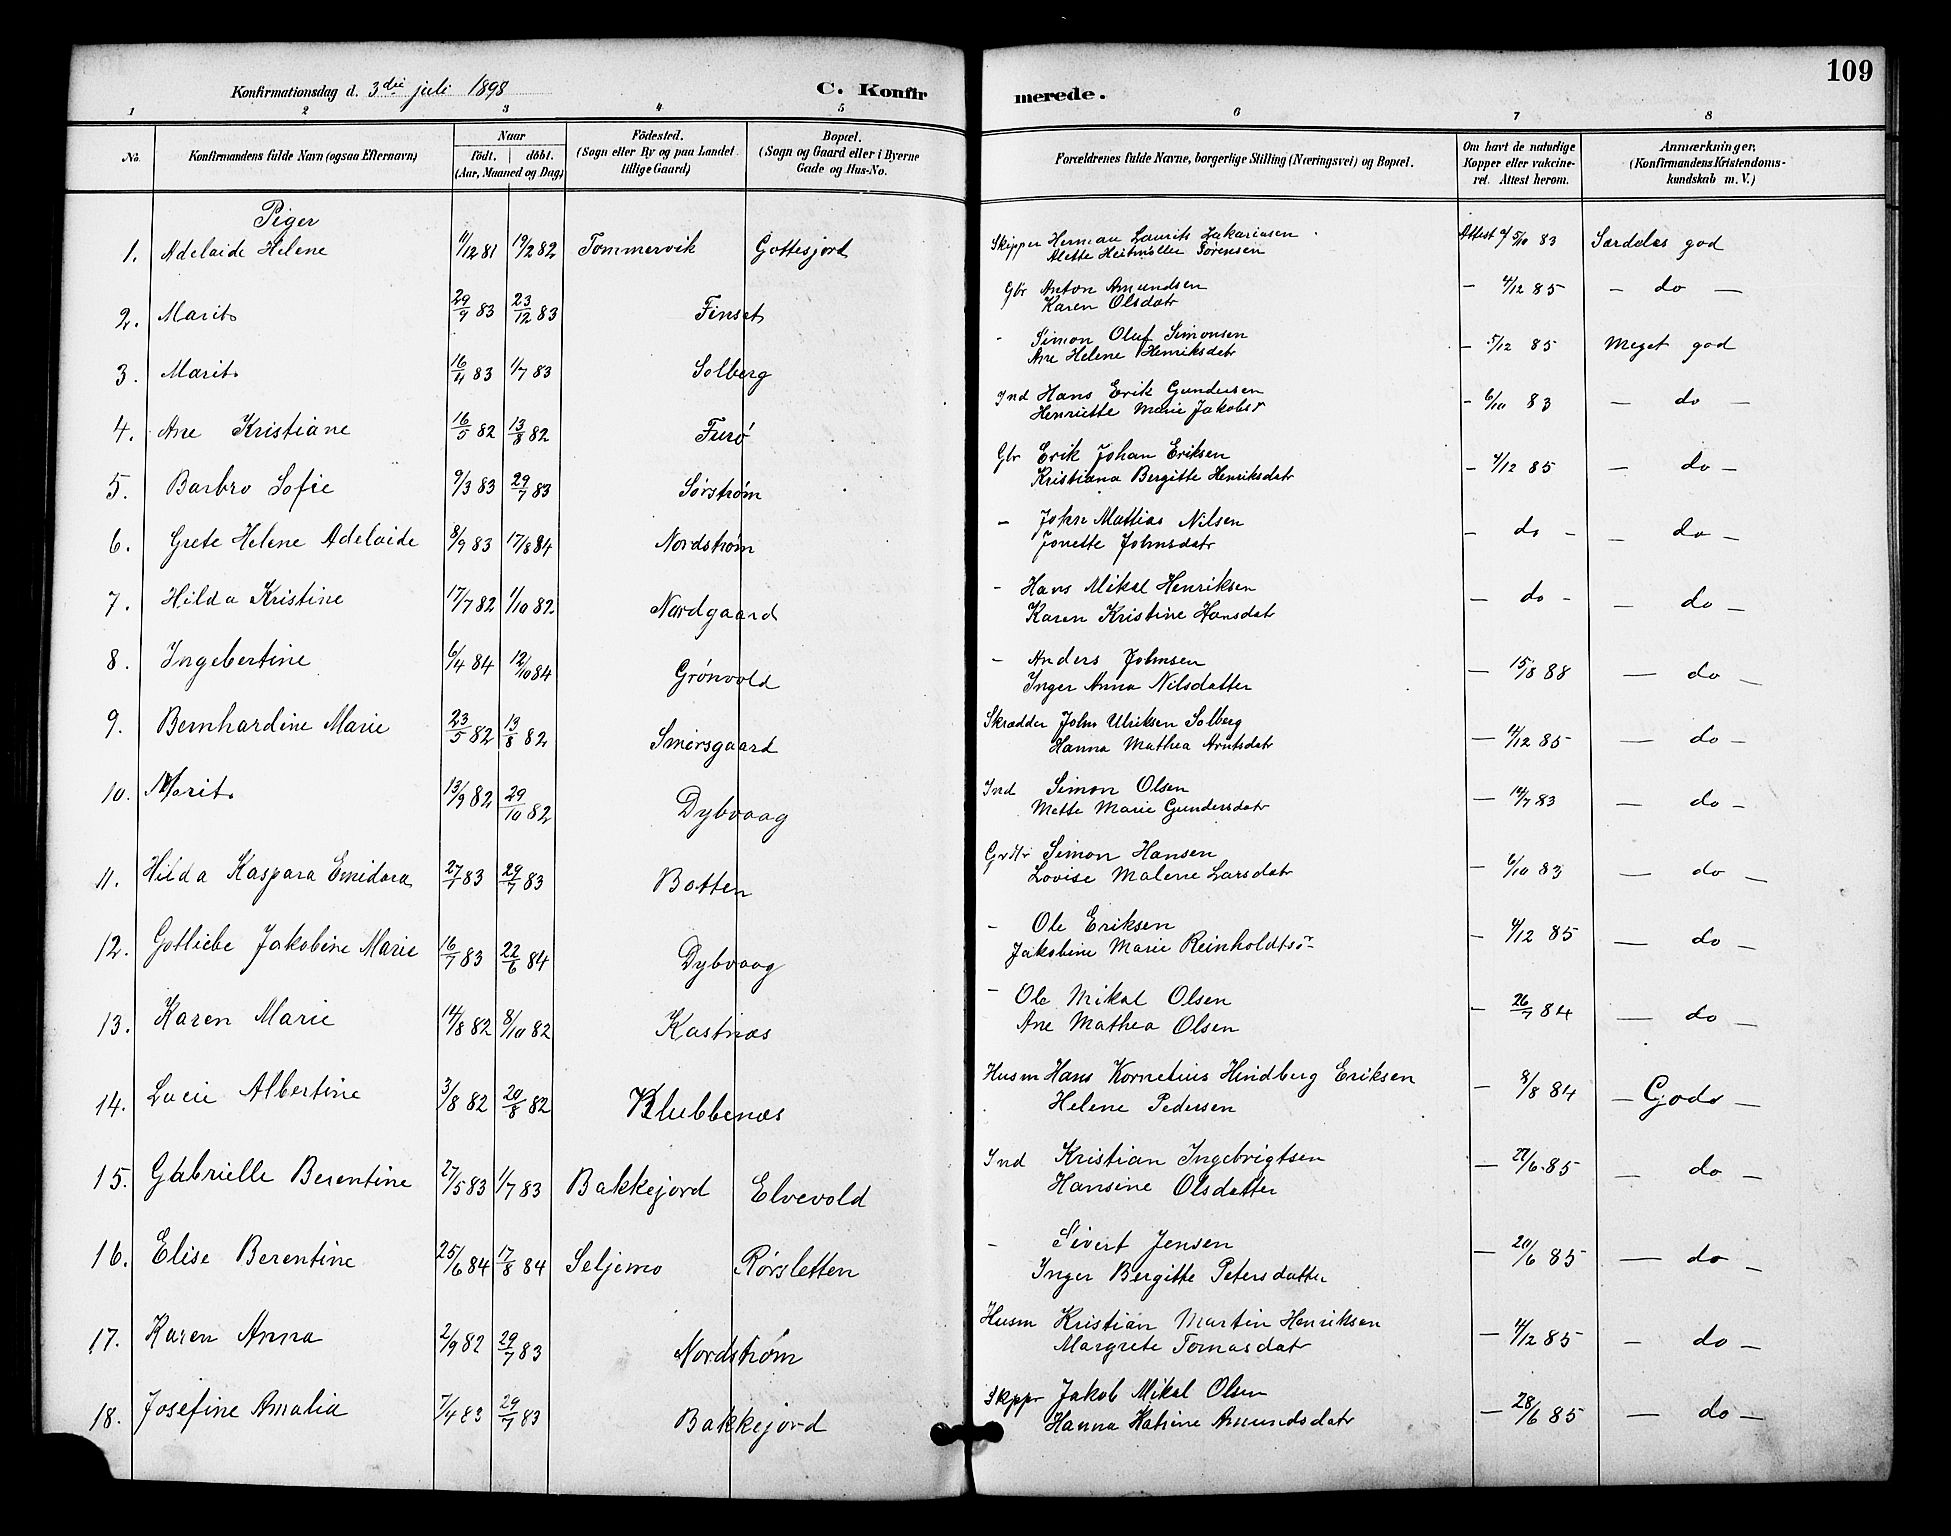 109
Konfirmationsdag d. 3die juli 1898
C. Konfirmerede.
1 2 3 4 5 6 7 8
No. Konfirmandens fulde Navn (ogsaa Efternavn) Naar födt. döbt. (Aar, Maaned og Dag) Födested. (Sogn eller By og paa Landet tillige Gaard) Bopæl. (Sogn og Gaard eller i Byerne Gade og Hus-No. Forældrenes fulde Navne, borgerlige Stilling (Næringsvei) og Bopæl. Om havt de naturlige Kopper eller vakcineret. Attest herom. Anmærkninger, (Konfirmandens Kristendomskundskab m. V.)
Piger
1. Adelaide Helene 11/12 81 19/2 82 Tommervik Gottesjord Skipper Herman Laurits Zakariasen Attest af 5/10 83 Særdeles god
Alette Heitmøller Sørensen
2. Marit 29/9 83 23/12 83 Finset Gbr Anton Amundsen - 4/12 85 - do -
Karen Olsdatr
3. Marit 16/4 83 1/7 83 Solberg - Simon Oluf Simonsen - 5/12 85 Meget god
Ane Helene Henriksdatr
4. Ane Kristiane 16/5 82 13/8 82 Furø Ind Hans Erik Gundersen - 6/10 83 - do -
Henriette Marie Jakobsr
5. Barbro Sofie 9/3 83 29/7 83 Sørstrøm Gbr Erik Johan Eriksen - 4/12 85 - do -
Kristiana Bergitte Henriksdatr
6. Grete Helene Adelaide 8/9 83 17/8 84 Nordstrøm - Johan Mattias Nilsen - do - - do -
Jonette Johnsdatr
7. Hilda Kristine 17/7 82 1/10 82 Nordgaard - Hans Mikal Henriksen - do - - do -
Karen Kristine Hansdat
8. Ingebertine 6/4 84 12/10 84 Grønvold - Anders Johnsen - 15/8 88 - do -
Inger Anna Nilsdatter
9. Bernhardine Marie 23/5 82 13/8 82 Smørsgaard Skrædder John Ulriksen Solberg - 4/12 85 - do -
Hanna Mathea Arntsdatr
10. Marit 13/9 82 29/10 82 Dybvaag Ind Simon Olsen - 14/7 83 - do -
Mette Marie Gundersdatr
11. Hilda Kaspara Emidara 27/1 83 29/7 83 Botten Simon Hansen - 6/10 83 - do -
Lovise Malene Larsdatr
12. Gotliebe Jakobine Marie 16/7 83 22/6 84 Dybvaag - Ole Eriksen - 4/12 85 - do -
Jakobine Marie Reinholdtsd
13. Karen Marie 14/8 82 8/10 82 Kastnæs - Ole Mikal Olsen - 26/7 84 - do -
Ane Mathea Olsen
14. Lucie Albertine 3/8 82 20/8 82 Klubbenæs Husm Hans Kornelius Hindberg Eriksen - 8/8 84 - Godt -
Helene Pedersen
15. Gabrielle Berentine 27/5 83 1/7 83 Bakkejord Elvevold Ind Kristian Ingebrigtsen - 28/6 85 - do -
Hansine Olsdatter
16. Elise Berentine 25/6 84 17/8 84 Seljemo Rørsletten - Sivert Jensen - 20/6 85 - do -
Inger Bergitte Petersdatter
17. Karen Anna 2/9 82 29/7 83 Nordstrøm Husm Kristian Martin Henriksen - 4/12 85 - do -
Margrete Tomasdatr
18. Josefine Amalia 7/4 83 29/7 83 Bakkejord Skppr Jakob Mikal Olsen - 28/6 85 - do -
Hanna Katrine Amundsdatr